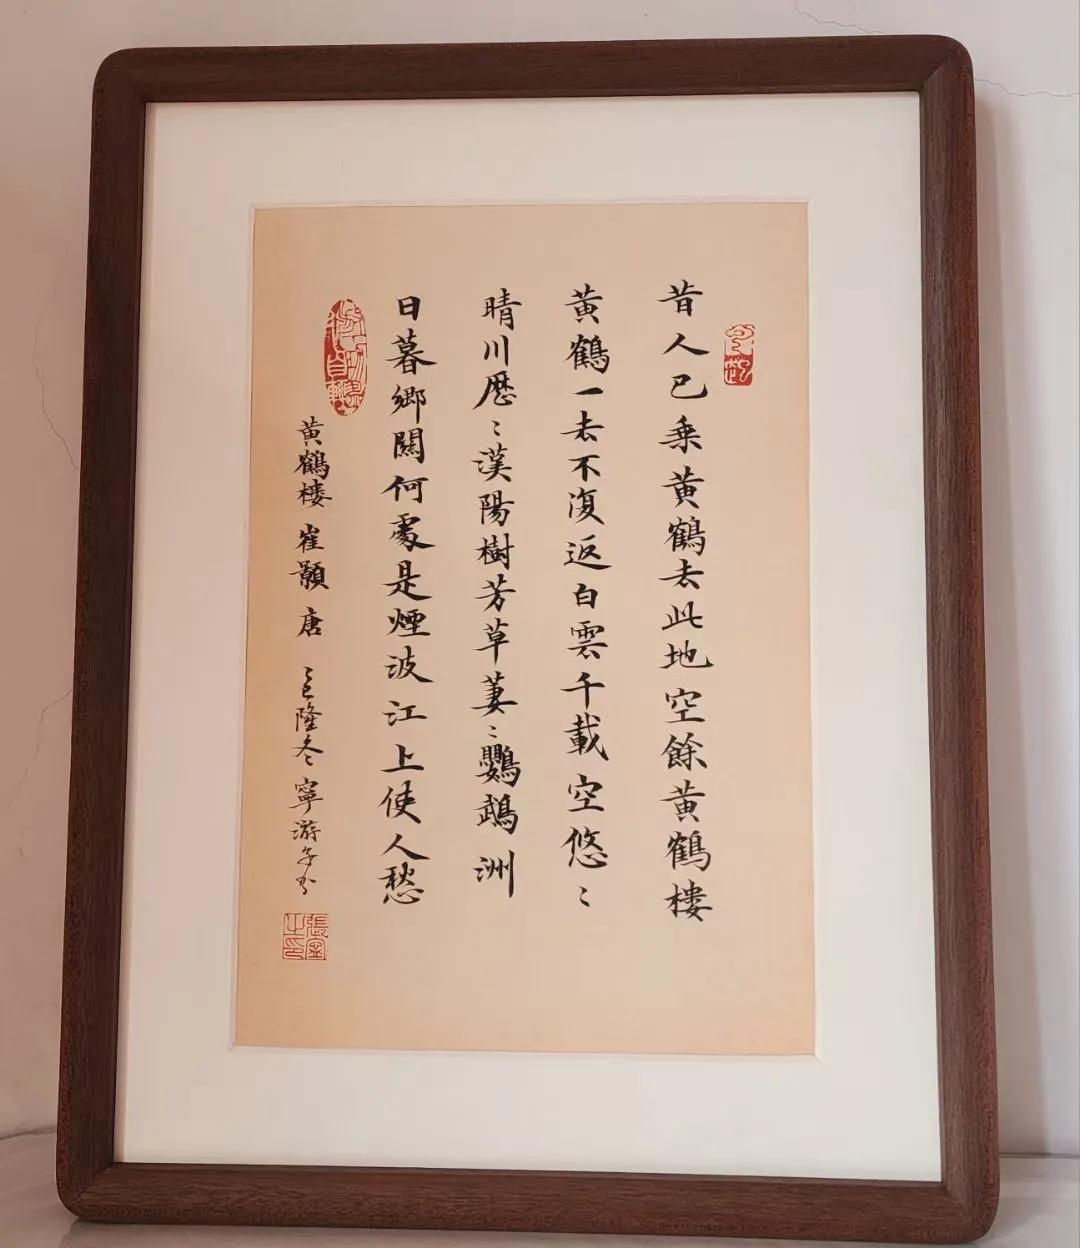 昔人已乘黃鶴去此地空餘黃鶴樓
黃鶴一去不復返白雲千載空悠〻
晴川歷〻漢陽樹芳草萋〻鸚鵡洲
日暮鄉關何處是煙波江上使人愁
黃鶴樓 崔顥 唐 隆冬 寧游子